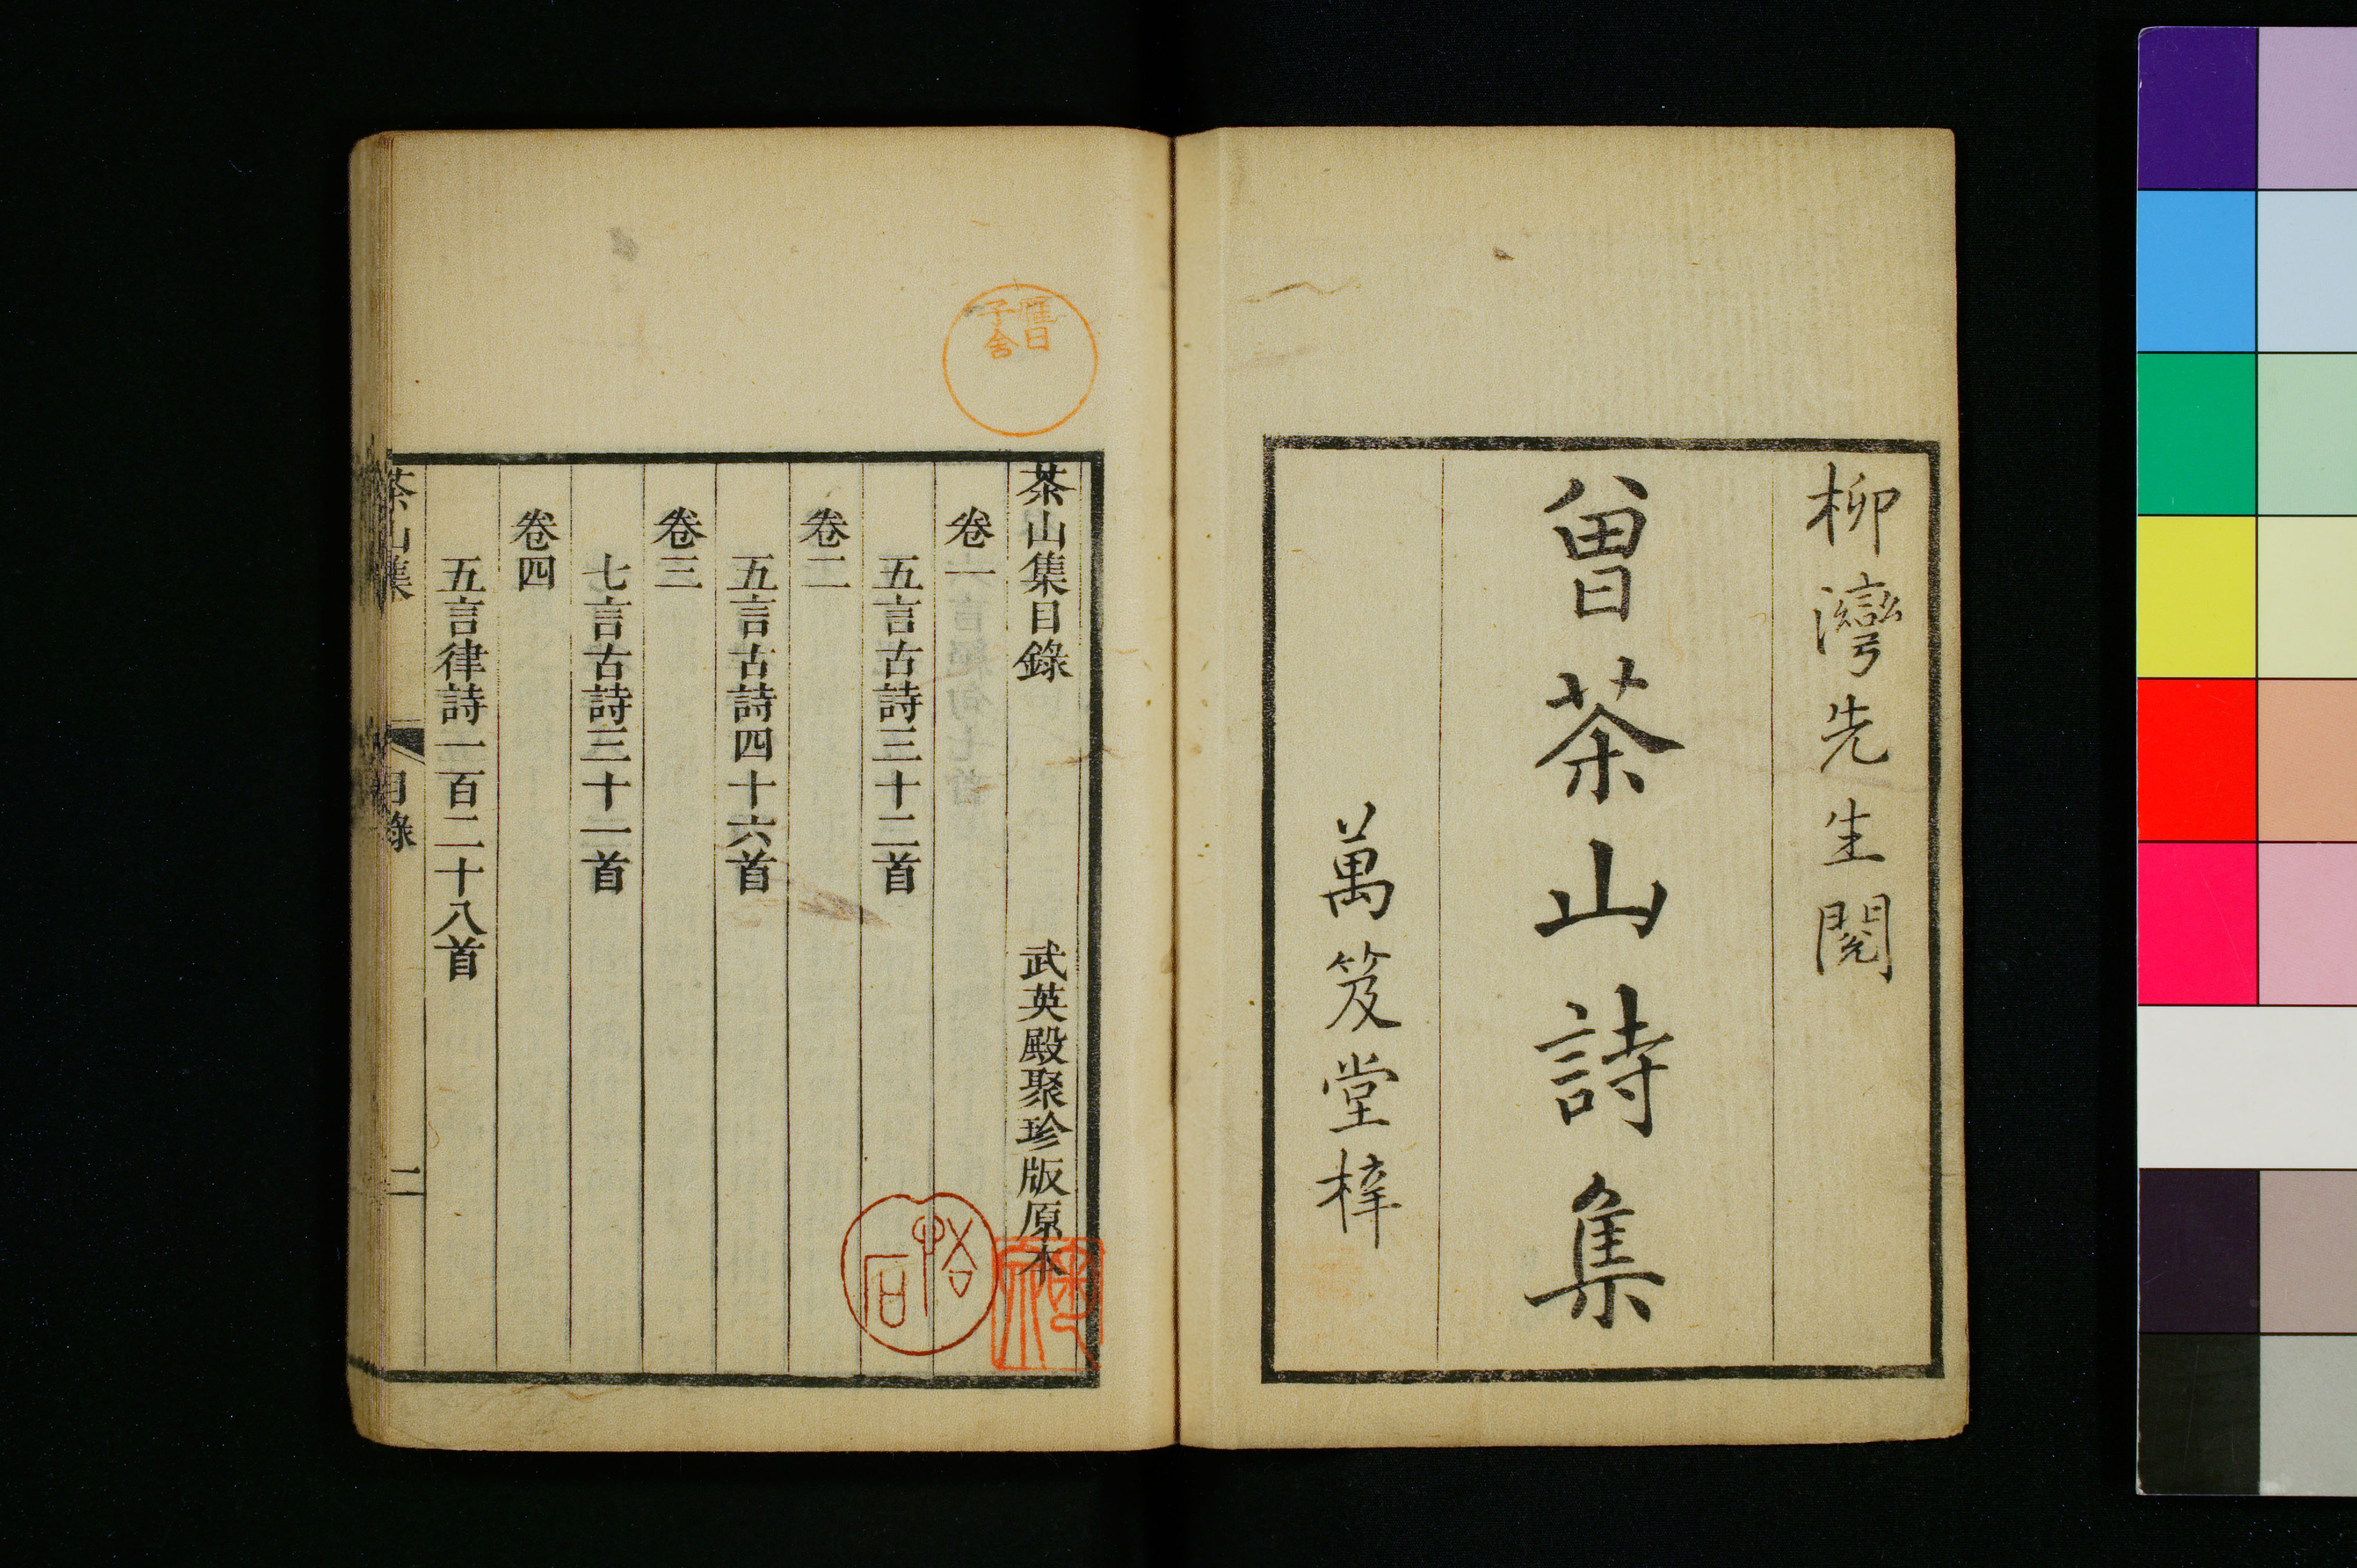 柳灣先生閱
曾茶山詩集
萬笈堂梓
茶山集目錄　武英殿聚珍版原本
卷一
五言古詩三十二首
卷二
五言古詩四十六首
卷三
七言古詩三十一首
卷四
五言律詩一百二十八首
茶山集　目錄　一